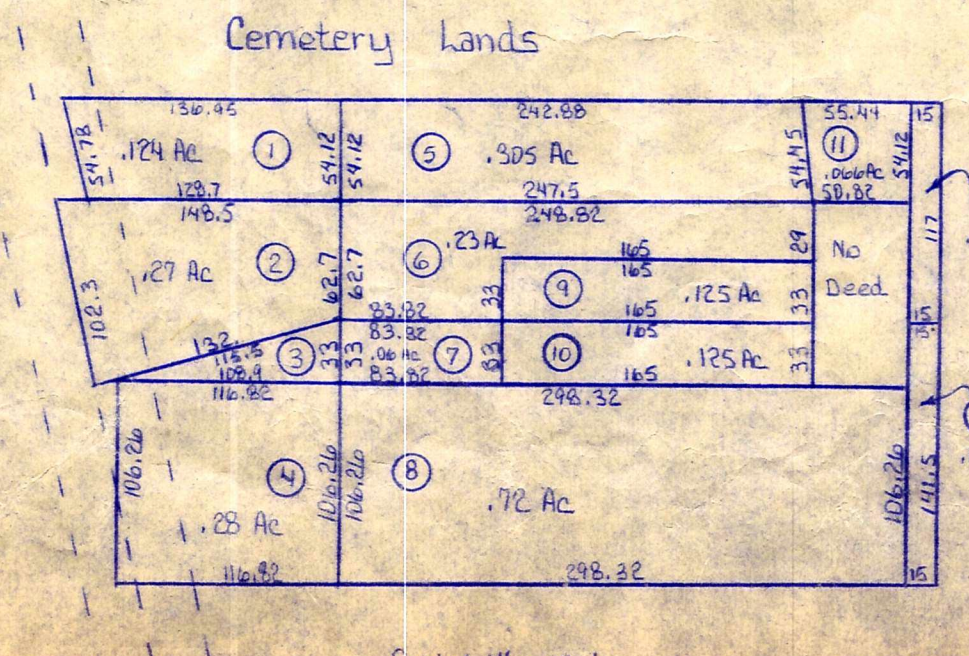 Cemetery Lands
136.95
242.88
55.44
15
54.78
.124 Ac
1
54.12
54.12
5
.305 Ac
54.45
11
.066 Ac
54.12
128.7
247.5
50.82
148.5
248.82
117
102.3
.27 Ac
2
62.7
62.7
6
.23 Ac
165
29
No
Deed
165
33
9
.125 Ac
33
83.82
165
15
132
115.5
3
33
33
83.82
.06 Ac
7
33
165
10
.125 Ac
33
15
108.9
83.82
165
116.82
298.32
106.26
4
106.26
106.26
8
.72 Ac
106.26
141.5
.28 Ac
116.82
298.32
15